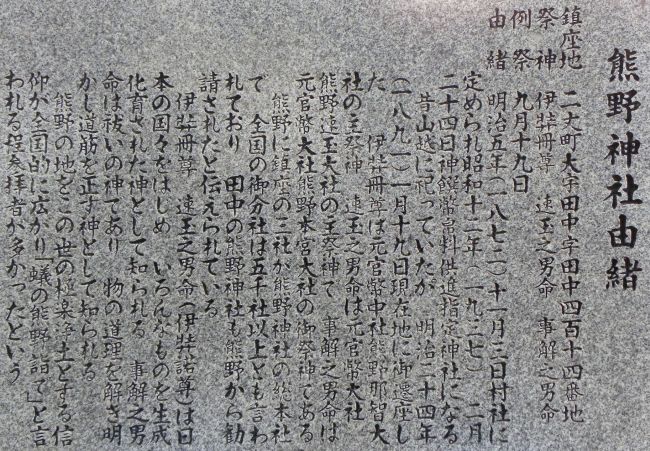 熊野神社由緒
鎮座地 二大町大字田中字田中四百十四番地
祭神 伊弉冊尊 速玉之男命 事解之男命
例祭 九月十九日
由緒 明治五年(一八七二)十一月三日村社に
定められ昭和十二年(一九三七) 二月
二十四日神饌幣帛料供進指定神社になる
昔山越に祀っていたが 明治二十四年
(一八九一)一月十九日現在地に御遷座し
た 伊弉冊尊は元官幣中社熊野那智大
社の主祭神 速玉之男命は元官幣大社
熊野速玉大社の主祭神で 事解之男命は
元官幣大社熊野本宮大社の御祭神である
熊野に鎮座の三社が熊野神社の総本社
で 全国の御分社は五千社以上とも言わ
れており 田中の熊野神社も熊野から勧
請されたと伝えられている
伊弉冊尊 速玉之男命(伊弉諾尊)は日
本の国々をはじめ いろんなものを生成
化育された神として知られる 事解之男
命は祓いの神であり 物の道理を解き明
かし道筋を正す神として知られる
熊野の地をこの世の極楽浄土とする信
仰が全国的に広がり「蟻の熊野詣で」と言
われる程参拝者が多かったという